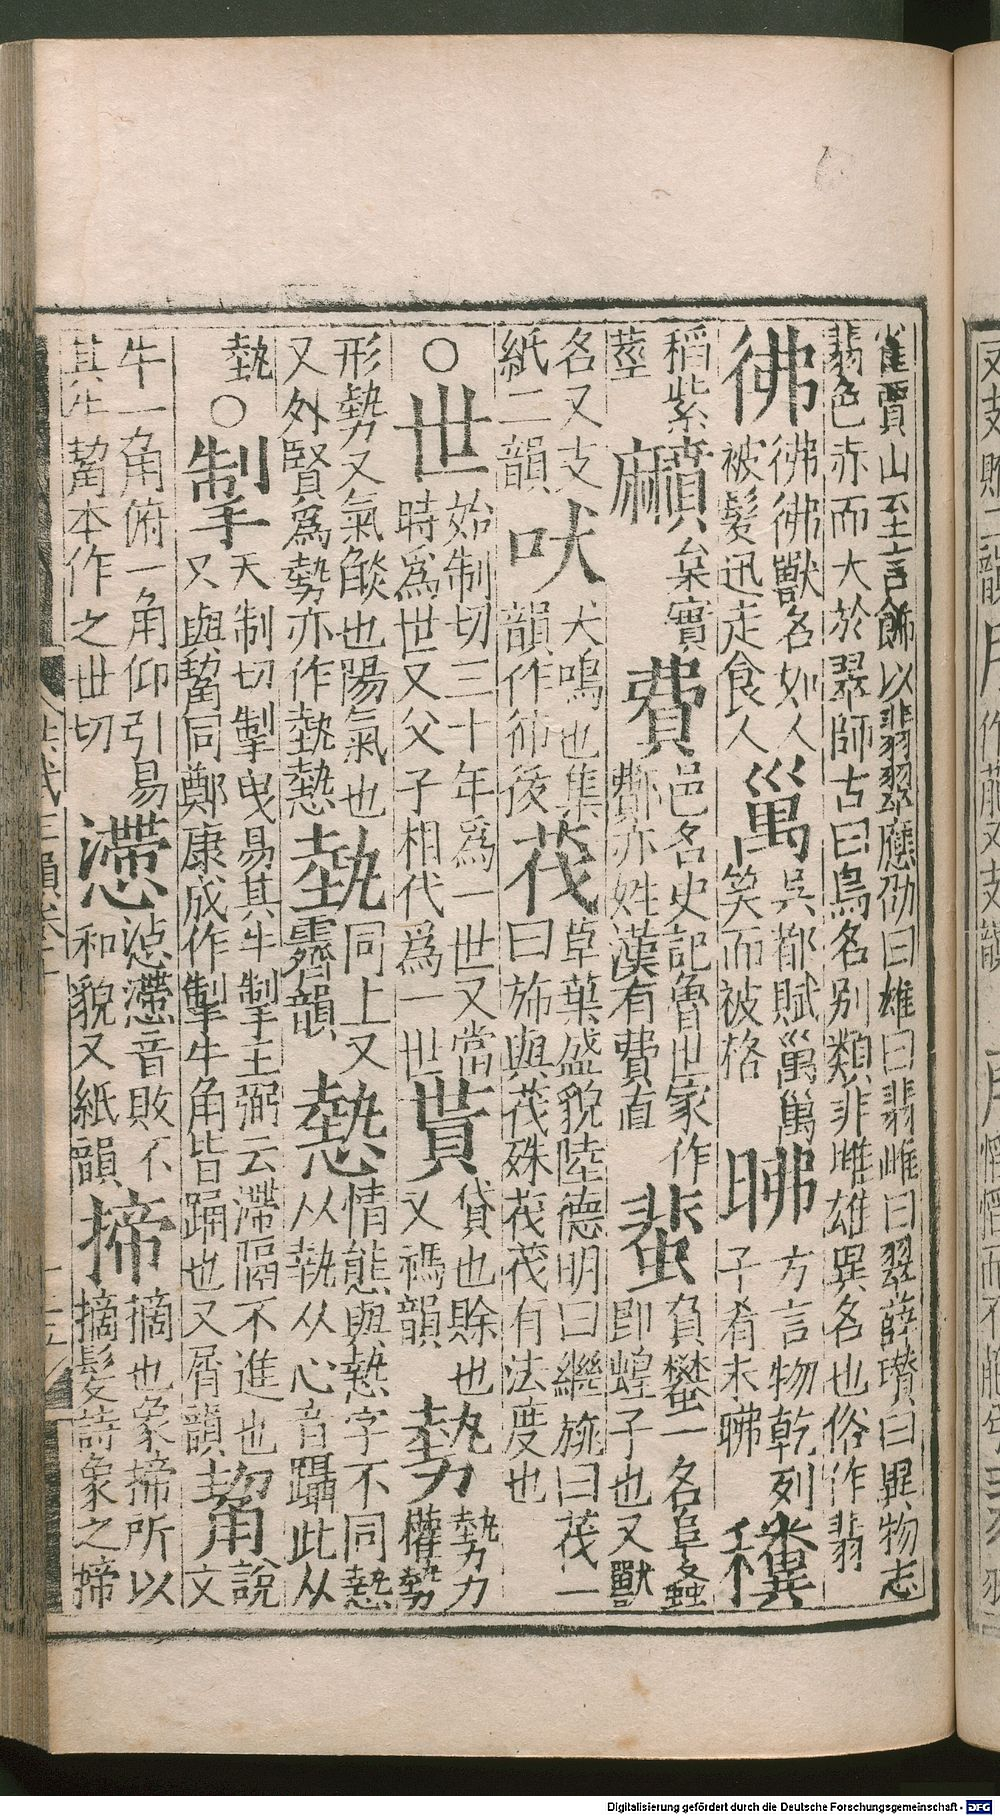 雀賈山至言飾以翡翠應劭曰雄曰翡雌曰翠薛瓚曰異物志
翡色赤而大於翠師古曰鳥名別類非雌雄異名也俗作翡
彿 彿彿獸名如人
被髮迅走食人
䍛 吳都賦䍛䍛
笑而被格
昲 方言物乾列
子肴末昲
䆏
稻紫
莖
黂 枲實
費 邑名史記魯世家作
鄪亦姓漢有費直
蜚 負蠜一名阜螽
即蝗子也又獸
名又支
紙二韻
吠 犬鳴也集
韻作㹃後
茷 草葉盛貌陸德明曰繼旐曰茷一
曰斾與茷殊茷茂有法度也
○
世 始制切三十年爲一世又當
時爲世又父子相代爲一世
貰 貸也賒也
又禡韻
勢 㔟力
權勢
形勢又氣燄也陽氣也
又外腎爲勢亦作埶㙯
埶 同上又
霽韻
慹 情態與慹字不同慹
从執从心音躡此从
埶
○
掣 天制切掣曳易其牛掣王弼云滯隔不進也
又與觢同鄭康成作掣牛角皆踊也又屑韻
觢 說
文
牛一角俯一角仰引易
其牛觢本作之世切
懘 惉懘音敗不
和貌又紙韻
揥 摘也象揥所以
摘髮詩象之揥
Digitalisierung gefördert durch die Deutsche Forschungsgemeinschaft - DFG